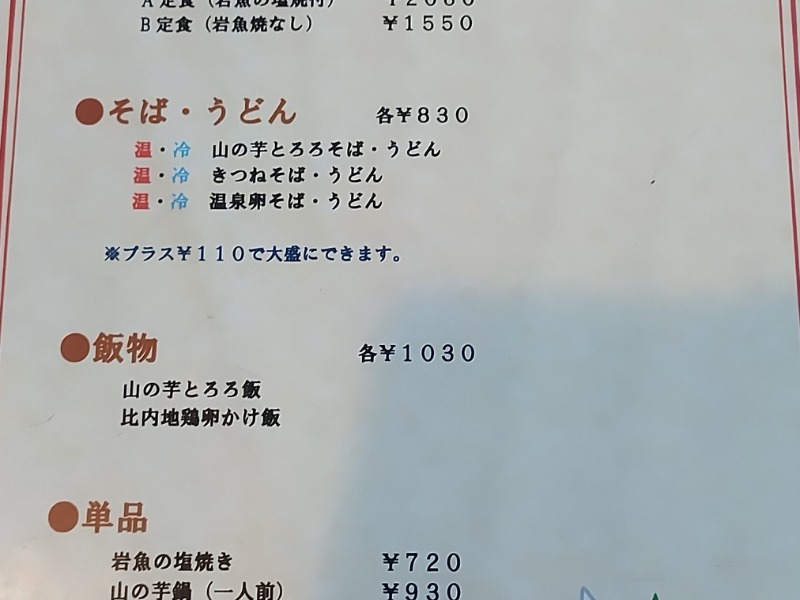 A定食（岩魚の塩焼付） ￥2080
B定食（岩魚焼なし） ￥1550
●そば・うどん 各￥830
温・冷 山の芋とろろそば・うどん
温・冷 きつねそば・うどん
温・冷 温泉卵そば・うどん
※プラス￥110で大盛にできます。
●飯物 各￥1030
山の芋とろろ飯
比内地鶏卵かけ飯
●単品
岩魚の塩焼き ￥720
山の芋鍋（一人前） ￥930